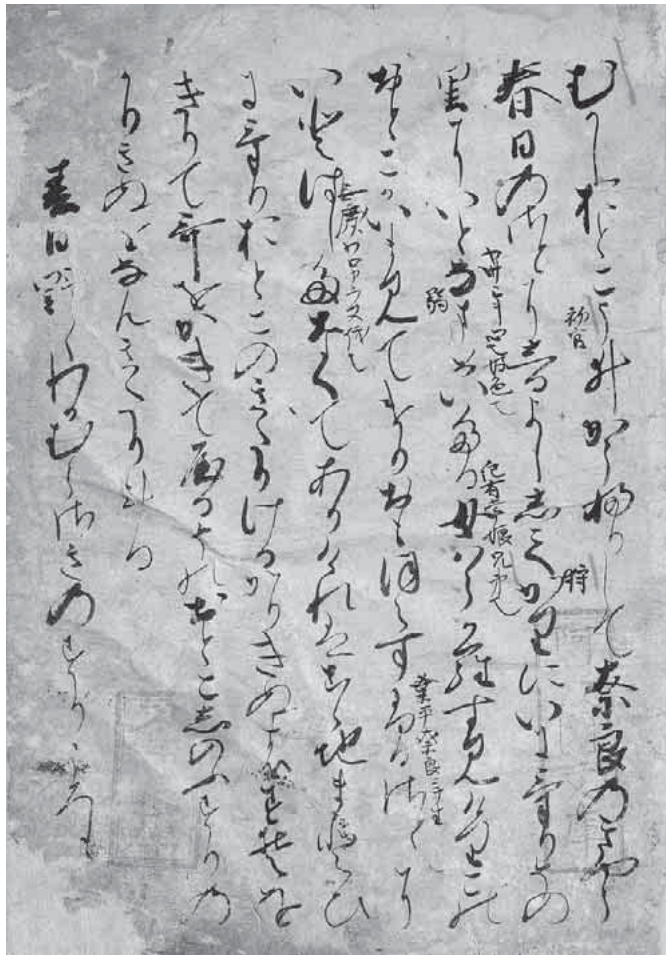 むかしおとこうゐかうふりして奈良のきやう
初官
春日のさとにしるよししてかりにいにけりその
狩
里にいとなまめいたる女はらからすみけりこの
紀有常娘兄弟也
おとこかいま見てけりおもほえすふるさとに
業平奈良ニ生
いとはしたなくてありけれはこゝ地まとひ
にけりおとこのきたりけるかりきぬのすそを
きりて哥をかきてやるそのおとこしのふすりの
かりきぬをなんきたりける
春日野ゝわかむらさきのすりころも